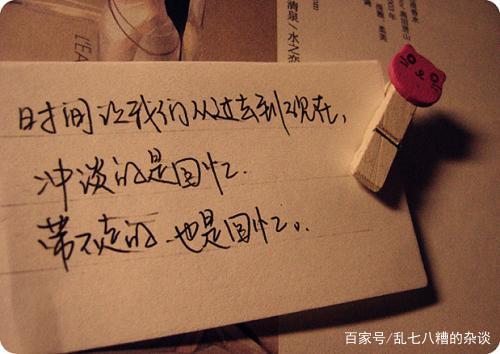 时间让我们从过去到现在,
冲淡的是回忆.
带不走的 也是回忆。
清泉/水之恋
百家号/乱七八糟的杂谈